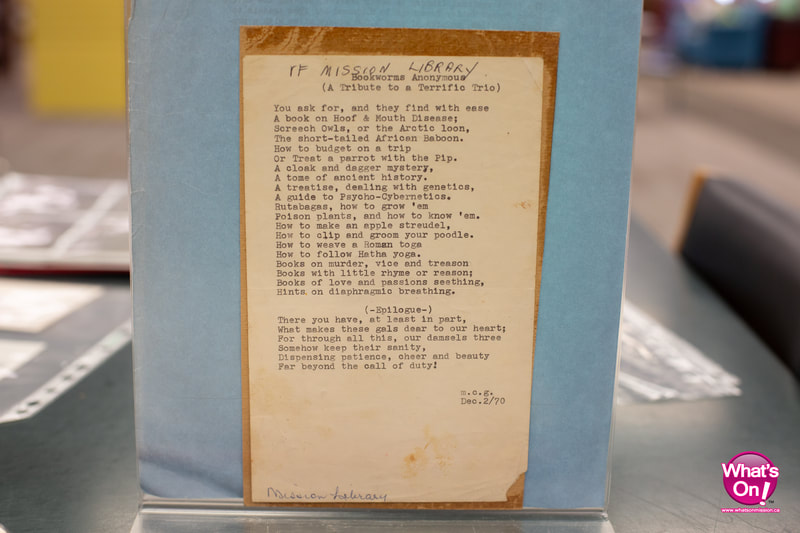 VF MISSION LIBRARY
Bookworms Anonymous
(A Tribute to a Terrific Trio)
You ask for, and they find with ease
A book on Hoof & Mouth Disease;
Screech Owls, or the Arctic loon,
The short-tailed African Baboon.
How to budget on a trip
Or Treat a parrot with the Pip.
A cloak and dagger mystery,
A tome of ancient history.
A treatise, dealing with genetics,
A guide to Psycho-Cybernetics.
Rutabagas, how to grow 'em
Poison plants, and how to know 'em.
How to make an apple streudel,
How to clip and groom your poodle.
How to weave a Roman toga
How to follow Hatha yoga.
Books on murder, vice and treason
Books with little rhyme or reason;
Books of love and passions seething,
Hints on diaphragmic breathing.
(-Epilogue-)
There you have, at least in part,
What makes these gals dear to our heart;
For through all this, our damsels three
Somehow keep their sanity,
Dispensing patience, cheer and beauty
Far beyond the call of duty!
m.c.g.
Dec.2/70
Mission Library
What's
On!
TM
www.whatsonmission.ca